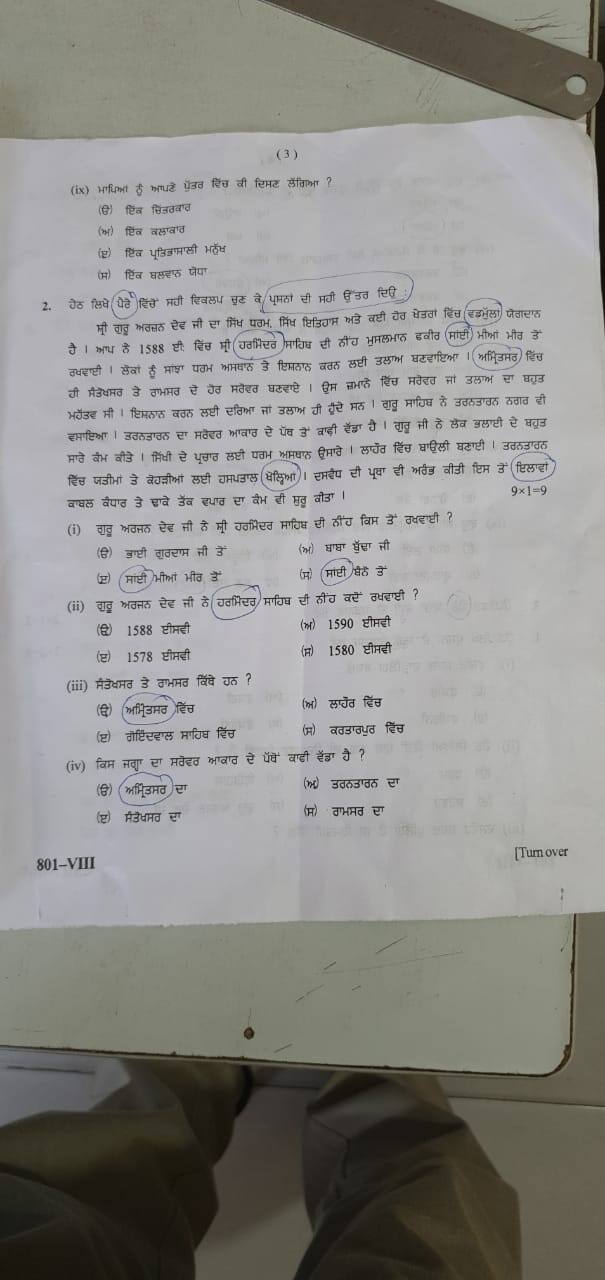 ( 3 )
(ix) ਮਾਪਿਆਂ ਨੂੰ ਆਪਣੇ ਪੁੱਤਰ ਵਿੱਚ ਕੀ ਦਿਸਣ ਲੱਗਿਆ ?
(ੳ) ਇੱਕ ਚਿੱਤਰਕਾਰ
(ਅ) ਇੱਕ ਕਲਾਕਾਰ
(ੲ) ਇੱਕ ਪ੍ਰਤਿਭਾਸਾਲੀ ਮਨੁੱਖ
(ਸ) ਇੱਕ ਬਲਵਾਨ ਯੋਧਾ
2. ਹੇਠ ਲਿਖੇ ਪੈਰੇ ਵਿਚੋਂ ਸਹੀ ਵਿਕਲਪ ਚੁਣ ਕੇ ਪ੍ਰਸ਼ਨਾਂ ਦੀ ਸਹੀ ਉੱਤਰ ਦਿਓ :
ਸ੍ਰੀ ਗੁਰੂ ਅਰਜਨ ਦੇਵ ਜੀ ਦਾ ਸਿੱਖ ਧਰਮ, ਸਿੱਖ ਇਤਿਹਾਸ ਅਤੇ ਕਈ ਹੋਰ ਖੇਤਰਾਂ ਵਿੱਚ ਵਡਮੁੱਲਾ ਯੋਗਦਾਨ
ਹੈ । ਆਪ ਨੇ 1588 ਈ: ਵਿੱਚ ਸ੍ਰੀ ਹਰਮਿੰਦਰ ਸਾਹਿਬ ਦੀ ਨੀਂਹ ਮੁਸਲਮਾਨ ਫਕੀਰ ਸਾਂਈ ਮੀਆਂ ਮੀਰ ਤੋਂ
ਰਖਵਾਈ । ਲੋਕਾਂ ਨੂੰ ਸਾਂਝਾ ਧਰਮ ਅਸਥਾਨ ਤੇ ਇਸ਼ਨਾਨ ਕਰਨ ਲਈ ਤਲਾਅ ਬਣਵਾਇਆ । ਅਮ੍ਰਿੰਤਸਰ ਵਿੱਚ
ਹੀ ਸੰਤੋਖਸਰ ਤੇ ਰਾਮਸਰ ਦੋ ਹੋਰ ਸਰੋਵਰ ਬਣਵਾਏ । ਉਸ ਜ਼ਮਾਨੇ ਵਿੱਚ ਸਰੋਵਰ ਜਾਂ ਤਲਾਅ ਦਾ ਬਹੁਤ
ਮਹੱਤਵ ਸੀ । ਇਸ਼ਨਾਨ ਕਰਨ ਲਈ ਦਰਿਆ ਜਾਂ ਤਲਾਅ ਹੀ ਹੁੰਦੇ ਸਨ । ਗੁਰੂ ਸਾਹਿਬ ਨੇ ਤਰਨਤਾਰਨ ਨਗਰ ਵੀ
ਵਸਾਇਆ । ਤਰਨਤਾਰਨ ਦਾ ਸਰੋਵਰ ਆਕਾਰ ਦੇ ਪੱਖ ਤੋਂ ਕਾਫੀ ਵੱਡਾ ਹੈ । ਗੁਰੂ ਜੀ ਨੇ ਲੋਕ ਭਲਾਈ ਦੇ ਬਹੁਤ
ਸਾਰੇ ਕੰਮ ਕੀਤੇ । ਸਿੱਖੀ ਦੇ ਪ੍ਰਚਾਰ ਲਈ ਧਰਮ ਅਸਥਾਨ ਉਸਾਰੇ । ਲਾਹੌਰ ਵਿੱਚ ਬਾਉਲੀ ਬਣਾਈ । ਤਰਨਤਾਰਨ
ਵਿੱਚ ਯਤੀਮਾਂ ਤੇ ਕੋਹੜੀਆਂ ਲਈ ਹਸਪਤਾਲ ਖੋਲ੍ਹਿਆ । ਦਸਵੰਧ ਦੀ ਪ੍ਰਥਾ ਵੀ ਅਰੰਭ ਕੀਤੀ ਇਸ ਤੋਂ ਇਲਾਵਾਂ
ਕਾਬਲ ਕੰਧਾਰ ਤੇ ਢਾਕੇ ਤੱਕ ਵਪਾਰ ਦਾ ਕੰਮ ਵੀ ਸ਼ੁਰੂ ਕੀਤਾ । 9×1=9
(i) ਗੁਰੂ ਅਰਜਨ ਦੇਵ ਜੀ ਨੇ ਸ੍ਰੀ ਹਰਮਿੰਦਰ ਸਾਹਿਬ ਦੀ ਨੀਂਹ ਕਿਸ ਤੋਂ ਰਖਵਾਈ ?
(ੳ) ਭਾਈ ਗੁਰਦਾਸ ਜੀ ਤੋਂ (ਅ) ਬਾਬਾ ਬੁੱਢਾ ਜੀ
(ੲ) ਸਾਂਈ ਮੀਆਂ ਮੀਰ ਤੋਂ (ਸ) ਸਾਂਈ ਬੈਨੋ ਤੋਂ
(ii) ਗੁਰੂ ਅਰਜਨ ਦੇਵ ਜੀ ਨੇ ਹਰਮਿੰਦਰ ਸਾਹਿਬ ਦੀ ਨੀਂਹ ਕਦੋਂ ਰਖਵਾਈ ?
(ੳ) 1588 ਈਸਵੀ (ਅ) 1590 ਈਸਵੀ
(ੲ) 1578 ਈਸਵੀ (ਸ) 1580 ਈਸਵੀ
(iii) ਸੰਤੋਖਸਰ ਤੇ ਰਾਮਸਰ ਕਿੱਥੇ ਹਨ ?
(ੳ) ਅਮ੍ਰਿੰਤਸਰ ਵਿੱਚ (ਅ) ਲਾਹੌਰ ਵਿੱਚ
(ੲ) ਗੋਇੰਦਵਾਲ ਸਾਹਿਬ ਵਿੱਚ (ਸ) ਕਰਤਾਰਪੁਰ ਵਿੱਚ
(iv) ਕਿਸ ਜਗ੍ਹਾ ਦਾ ਸਰੋਵਰ ਆਕਾਰ ਦੇ ਪੱਖੋਂ ਕਾਫੀ ਵੱਡਾ ਹੈ ?
(ੳ) ਅਮ੍ਰਿੰਤਸਰ ਦਾ (ਅ) ਤਰਨਤਾਰਨ ਦਾ
(ੲ) ਸੰਤੋਖਸਰ ਦਾ (ਸ) ਰਾਮਸਰ ਦਾ
801–VIII [Turn over